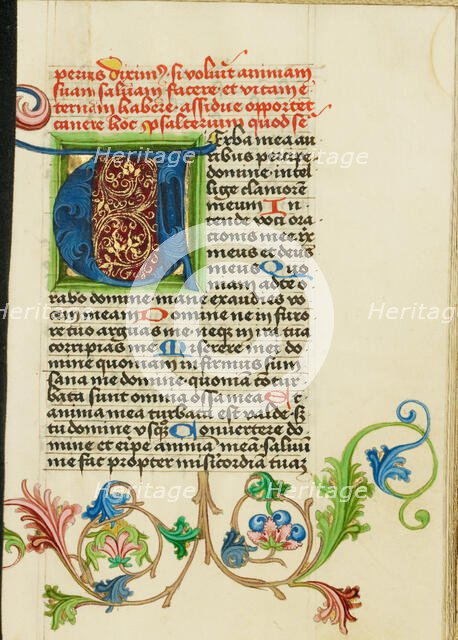 perius diximꝰ. si voluīt animam
suam saluam facere et vitam e
ternam habere assidue opportet
canere hoc psalterium quod seqͥ
Verba mea au
ribus percipe
domine intel
lige clamorē
meum In
tende voci ora
cionis mee rex
meus et deus
meus Quo
niam ad te o
rabo domine mane exaudies vo
cem meam Domine ne in furo
re tuo arguas me neqꝫ in ira tua
corripias me Miserere mei do
mine quoniam infirmus sum
sana me domine quoniā contur
bata sunt omnia ossa mea Et
anima mea turbata est valde sꝫ
tu domine vsqꝫquo Conuertere do
mine et eripe animā meā saluū
me fac propter misicordiā tuaꝫ
Heritage
Heritage
Heritage
Heritage
Heritage
Heritage